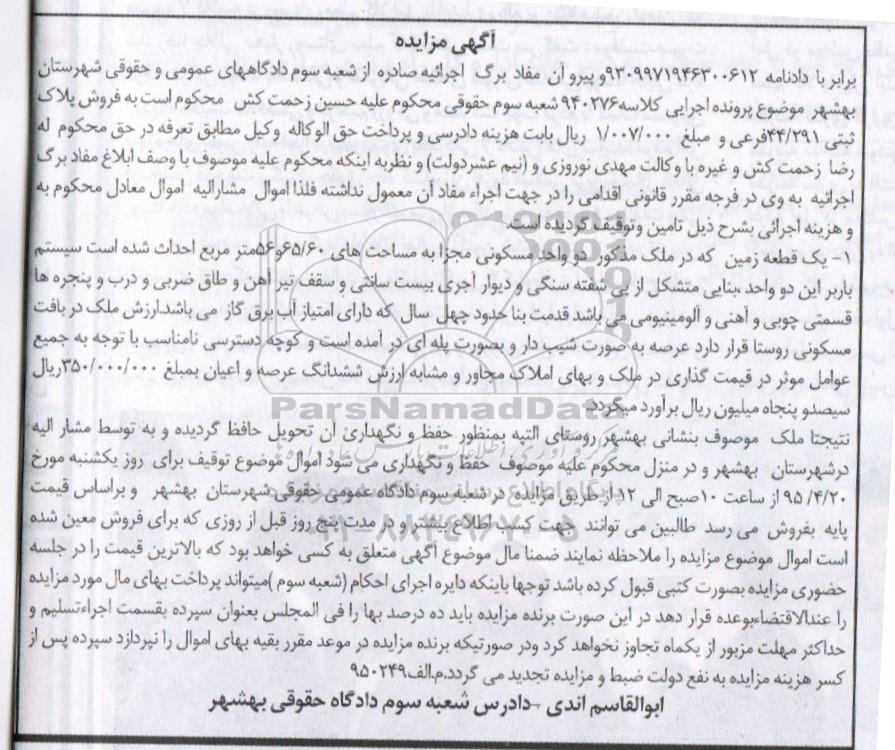 آگهی مزایده
برابر با دادنامه ۹۳۰۹۹۷۱۹۴۶۳۰۰۶۱۲و پیرو آن مفاد برگ اجرائیه صادره از شعبه سوم دادگاههای عمومی و حقوقی شهرستان
بهشهر موضوع پرونده اجرایی کلاسه۹۴۰۲۷۶ شعبه سوم حقوقی محکوم علیه حسین زحمت کش محکوم است به فروش پلاک
ثبتی ۴۴/۲۹۱فرعی و مبلغ ۱/۰۰۷/۰۰۰ ریال بابت هزینه دادرسی و پرداخت حق الوکاله وکیل مطابق تعرفه در حق محکوم له
رضا زحمت کش و غیره با وکالت مهدی نوروزی و (نیم عشردولت) و نظربه اینکه محکوم علیه موصوف با وصف ابلاغ مفاد برگ
اجرائیه به وی در فرجه مقرر قانونی اقدامی را در جهت اجراء مفاد آن معمول نداشته فلذا اموال مشارالیه اموال معادل محکوم به
و هزینه اجرائی بشرح ذیل تامین و توقیف گردیده است.
۱- یک قطعه زمین که در ملک مذکور دو واحد مسکونی مجزا به مساحت های ۶۵/۶۰و۵۶متر مربع احداث شده است سیستم
باربر این دو واحد ،بنایی متشکل از پی شفته سنگی و دیوار آجری بیست سانتی و سقف تیر آهن و طاق ضربی و درب و پنجره ها
قسمتی چوبی و آهنی و آلومینیومی می باشد قدمت بنا حدود چهل سال که دارای امتیاز آب برق گاز می باشد.ارزش ملک در بافت
مسکونی روستا قرار دارد عرصه به صورت شیب دار و بصورت پله ای در آمده است و کوچه دسترسی نامناسب با توجه به جمیع
عوامل موثر در قیمت گذاری در ملک و بهای املاک مجاور و مشابه ارزش ششدانگ عرصه و اعیان بمبلغ ۳۵۰/۰۰۰/۰۰۰ریال
سیصدو پنجاه میلیون ریال برآورد میگردد.
نتیجتا ملک موصوف بنشانی بهشهر روستای التپه بمنظور حفظ و نگهداری آن تحویل حافظ گردیده و به توسط مشار الیه
درشهرستان بهشهر و در منزل محکوم علیه موصوف حفظ و نگهداری می شود اموال موضوع توقیف برای روز یکشنبه مورخ
۹۵/۴/۲۰ از ساعت ۱۰صبح الی ۱۲ از طریق مزایده در شعبه سوم دادگاه عمومی حقوقی شهرستان بهشهر و براساس قیمت
پایه بفروش می رسد طالبین می توانند جهت کسب اطلاع بیشتر و در مدت پنج روز قبل از روزی که برای فروش معین شده
است اموال موضوع مزایده را ملاحظه نمایند ضمنا مال موضوع آگهی متعلق به کسی خواهد بود که بالاترین قیمت را در جلسه
حضوری مزایده بصورت کتبی قبول کرده باشد توجها باینکه دایره اجرای احکام (شعبه سوم )میتواند پرداخت بهای مال مورد مزایده
را عندالاقتضاءبوعده قرار دهد در این صورت برنده مزایده باید ده درصد بها را فی المجلس بعنوان سپرده بقسمت اجراءتسلیم و
حداکثر مهلت مزبور از یکماه تجاوز نخواهد کرد ودر صورتیکه برنده مزایده در موعد مقرر بقیه بهای اموال را نپردازد سپرده پس از
کسر هزینه مزایده به نفع دولت ضبط و مزایده تجدید می گردد.م.الف۹۵۰۲۴۹
ابوالقاسم اندی -دادرس شعبه سوم دادگاه حقوقی بهشهر
ParsNamadData